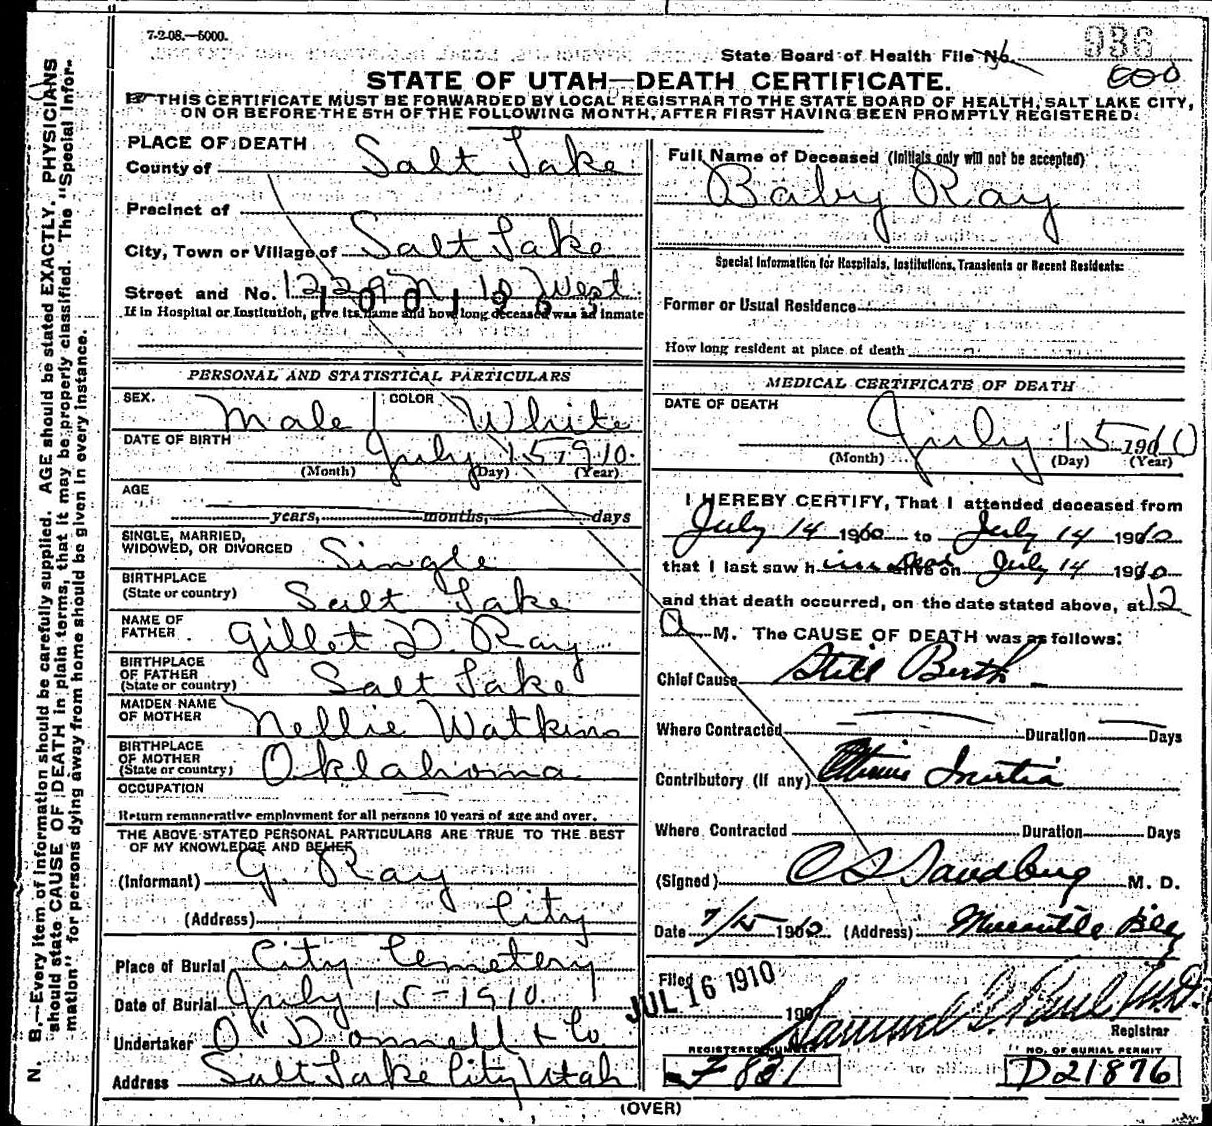 7-2-08.—5000.
936
State Board of Health File No.
STATE OF UTAH—DEATH CERTIFICATE.
THIS CERTIFICATE MUST BE FORWARDED BY LOCAL REGISTRAR TO THE STATE BOARD OF HEALTH, SALT LAKE CITY,
ON OR BEFORE THE 5TH OF THE FOLLOWING MONTH, AFTER FIRST HAVING BEEN PROMPTLY REGISTERED.
N. B.—Every item of information should be carefully supplied. AGE should be stated EXACTLY. PHYSICIANS
should state CAUSE OF DEATH in plain terms, that it may be properly classified. The "Special Infor-
mation" for persons dying away from home should be given in every instance.
PLACE OF DEATH
County of Salt Lake
Precinct of
City, Town or Village of Salt Lake
Street and No. 1229 N 10 West
If in Hospital or Institution, give its name and how long deceased was an inmate
PERSONAL AND STATISTICAL PARTICULARS
SEX. Male COLOR White
DATE OF BIRTH July 15 1910.
(Month) (Day) (Year)
AGE
years, months, days
SINGLE, MARRIED,
WIDOWED, OR DIVORCED Single
BIRTHPLACE
(State or country) Salt Lake
NAME OF
FATHER Gillet D. Ray
BIRTHPLACE
OF FATHER
(State or country) Salt Lake
MAIDEN NAME
OF MOTHER Nellie Watkins
BIRTHPLACE
OF MOTHER
(State or country) Oklahoma
OCCUPATION
Return remunerative employment for all persons 10 years of age and over.
THE ABOVE STATED PERSONAL PARTICULARS ARE TRUE TO THE BEST
OF MY KNOWLEDGE AND BELIEF
(Informant) G. Ray
(Address) City
Place of Burial City Cemetery
Date of Burial July 15-1910.
Undertaker O'Donnell & Co.
Address Salt Lake City Utah
Full Name of Deceased (Initials only will not be accepted)
Baby Ray
Special Information for Hospitals, Institutions, Transients or Recent Residents:
Former or Usual Residence
How long resident at place of death
MEDICAL CERTIFICATE OF DEATH
DATE OF DEATH
July 15 1910
(Month) (Day) (Year)
I HEREBY CERTIFY, That I attended deceased from
July 14 1910 to July 14 1910
that I last saw him alive on July 14 1910
and that death occurred, on the date stated above, at 12
A M. The CAUSE OF DEATH was as follows:
Chief Cause Still Birth
Where Contracted Duration Days
Contributory (if any) Uterine Inertia
Where Contracted Duration Days
(Signed) Sandberg M. D.
Date 7/15 1910 (Address) Mercantile Blg
Filed JUL 16 1910 190
Samuel G. Paul M.D.
Registrar
REGISTERED NUMBER NO. OF BURIAL PERMIT
F 821 D21876
(OVER)